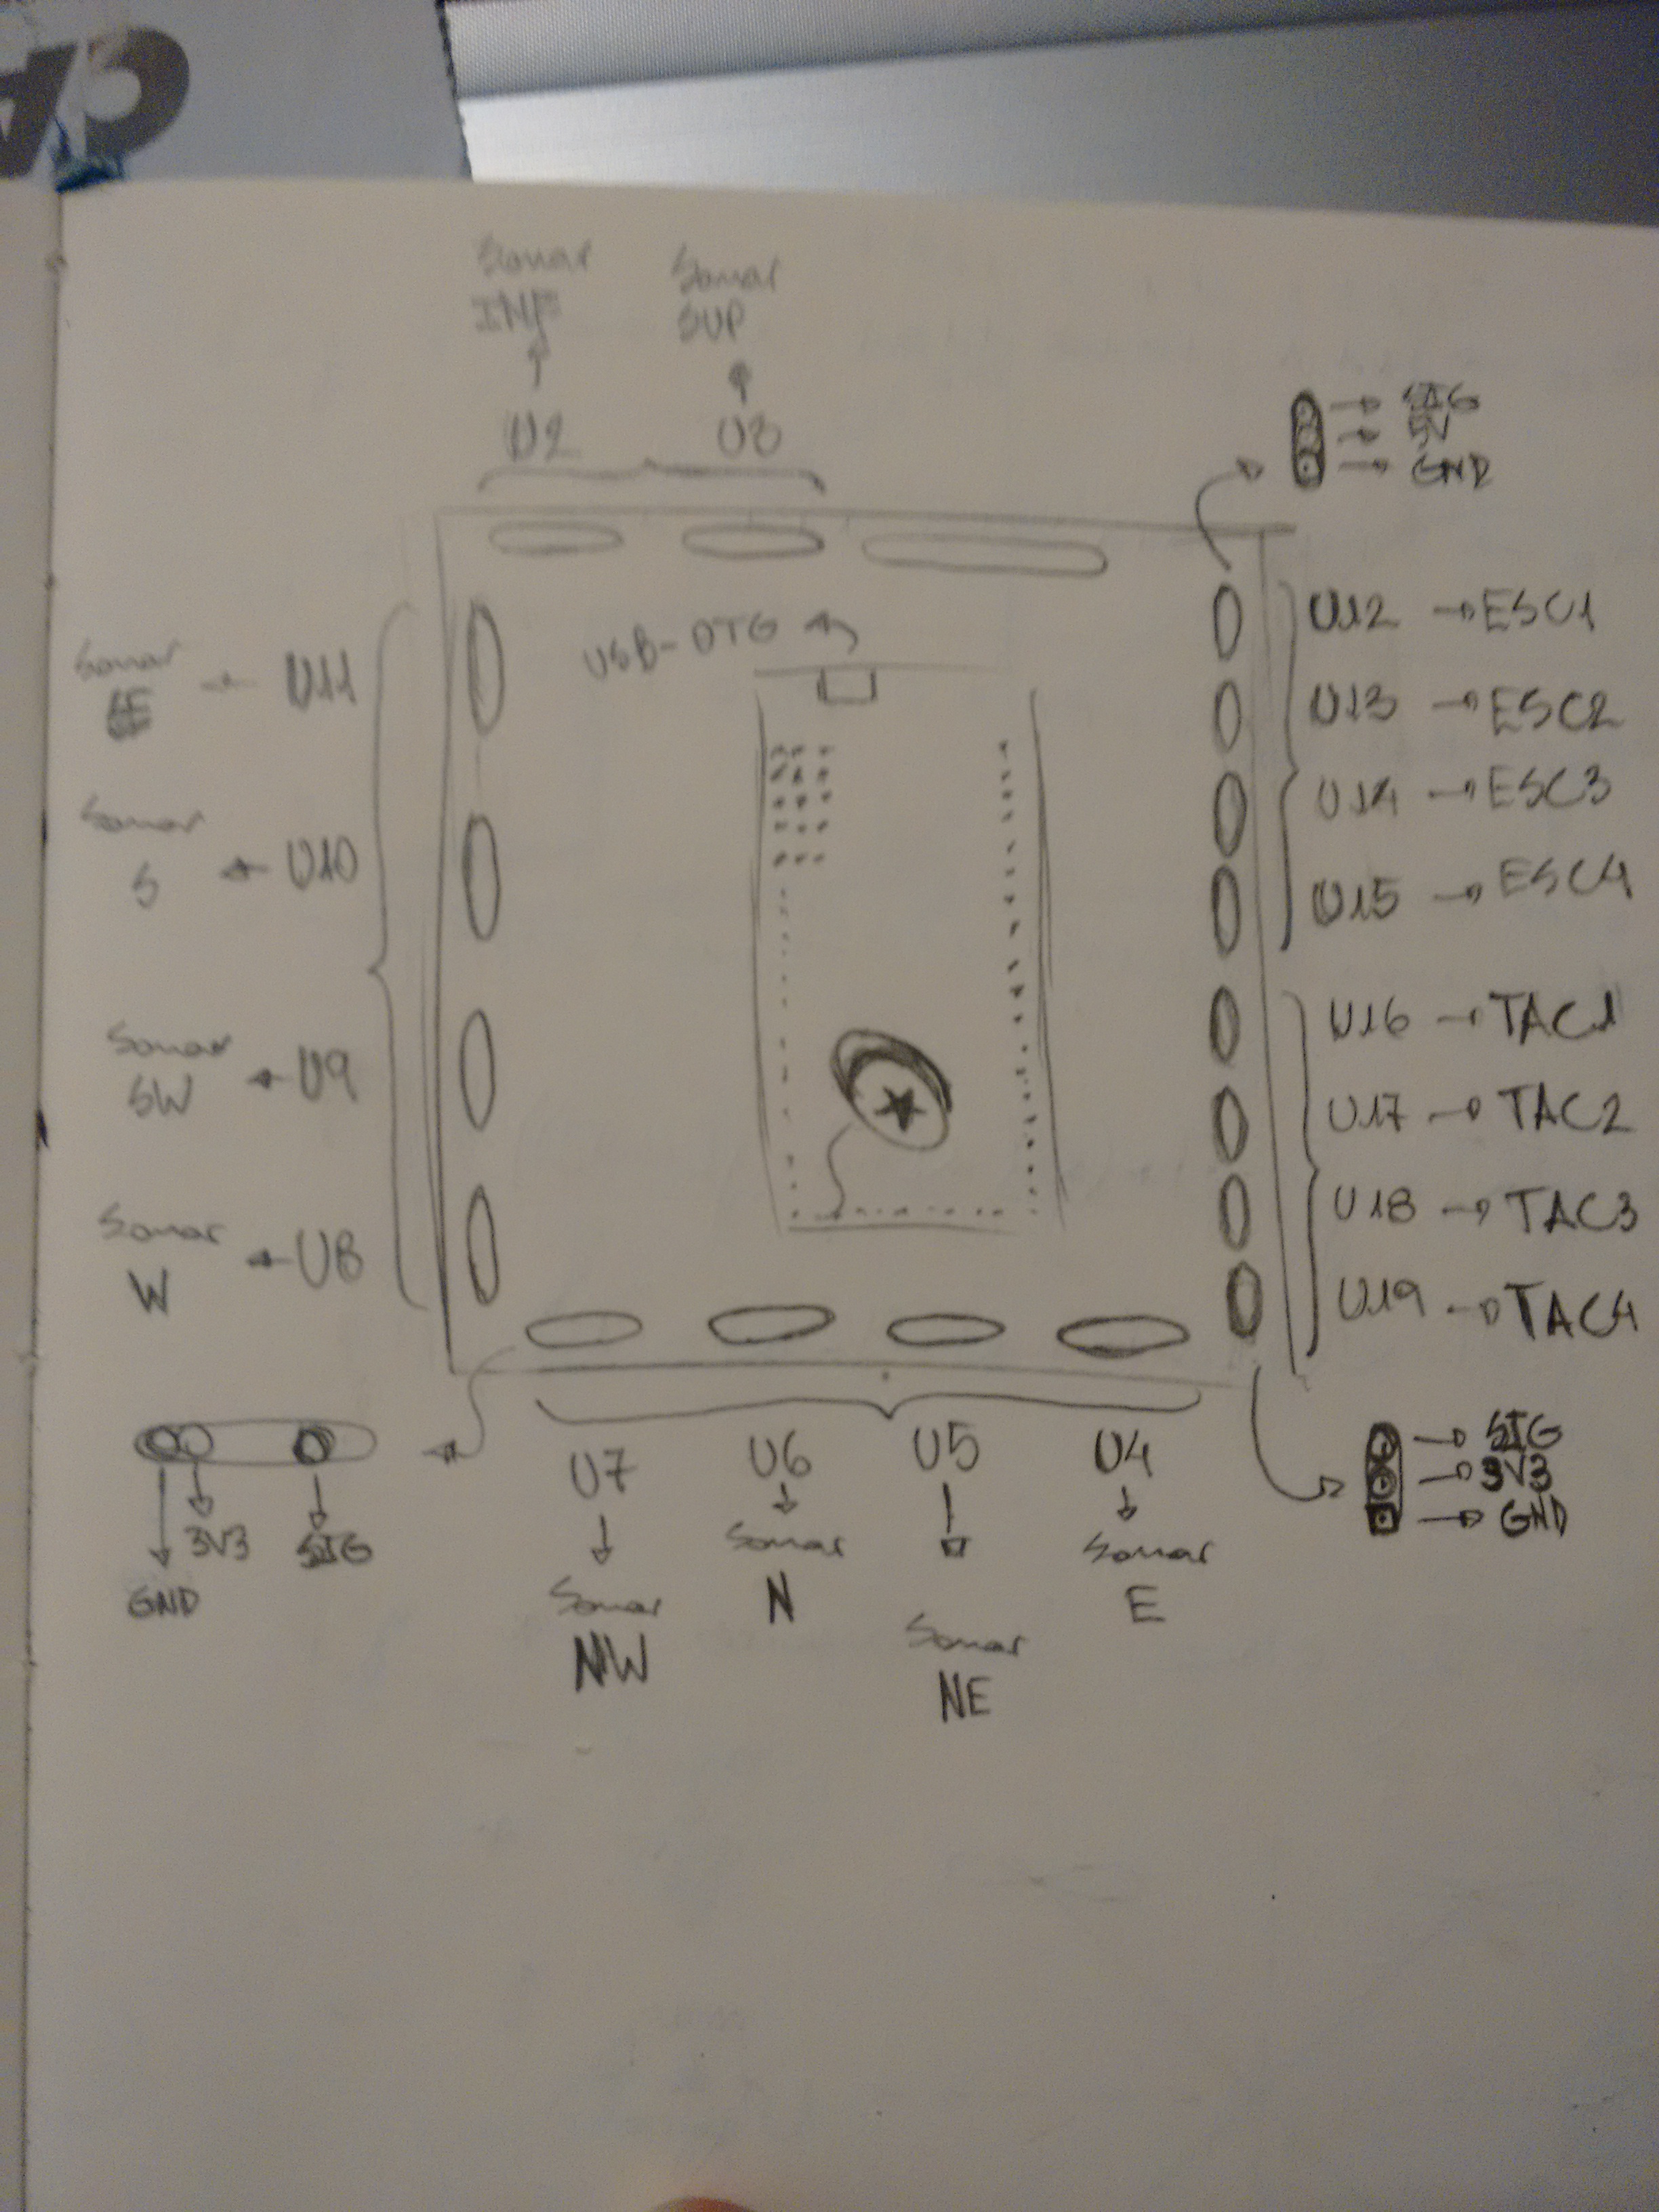 Sonar
INF
Sonar
SUP
U2
U3
SIG
5V
GND
USB-OTG
Sonar
U11
Sonar
S
U10
Sonar
SW
U9
Sonar
W
U8
U12 → ESC1
U13 → ESC2
U14 → ESC3
U15 → ESC4
U16 → TAC1
U17 → TAC2
U18 → TAC3
U19 → TAC4
GND
3V3
SIG
U7
Sonar
NW
U6
Sonar
N
U5
Sonar
NE
U4
Sonar
E
SIG
3V3
GND